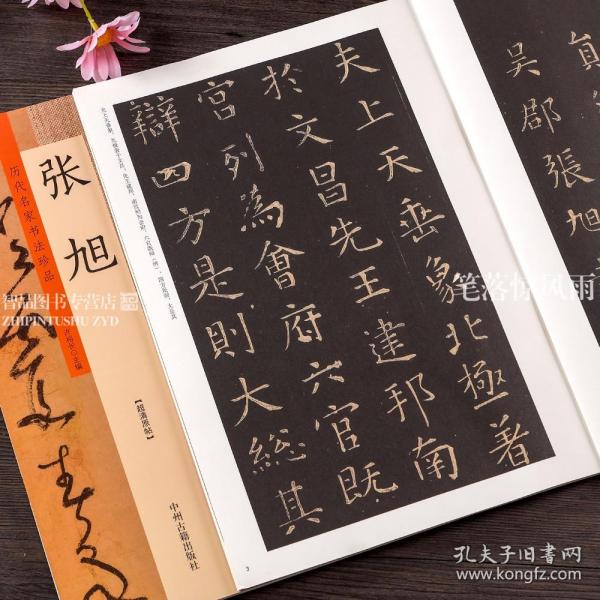 夫上天垂象北極著
於文昌先王建邦南
宮列為會府六官既
辯四方是則大總其
吴郡張旭
3
历代名家书法珍品
张旭
主编
【超清原帖】
中州古籍出版社
智品图书专营店
ZHIPINTUSHU ZYD
笔落惊风雨
孔夫子旧书网
www.kongfz.com